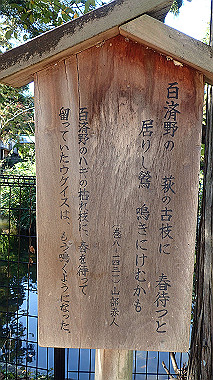 百済野の 萩の古枝に 春待つと
居りし鶯 鳴きにけむかも
(巻八-一四三一) 山部赤人
百済野のハギの枯れ枝に、春を待って
留っていたウグイスは、もう鳴くようになった。